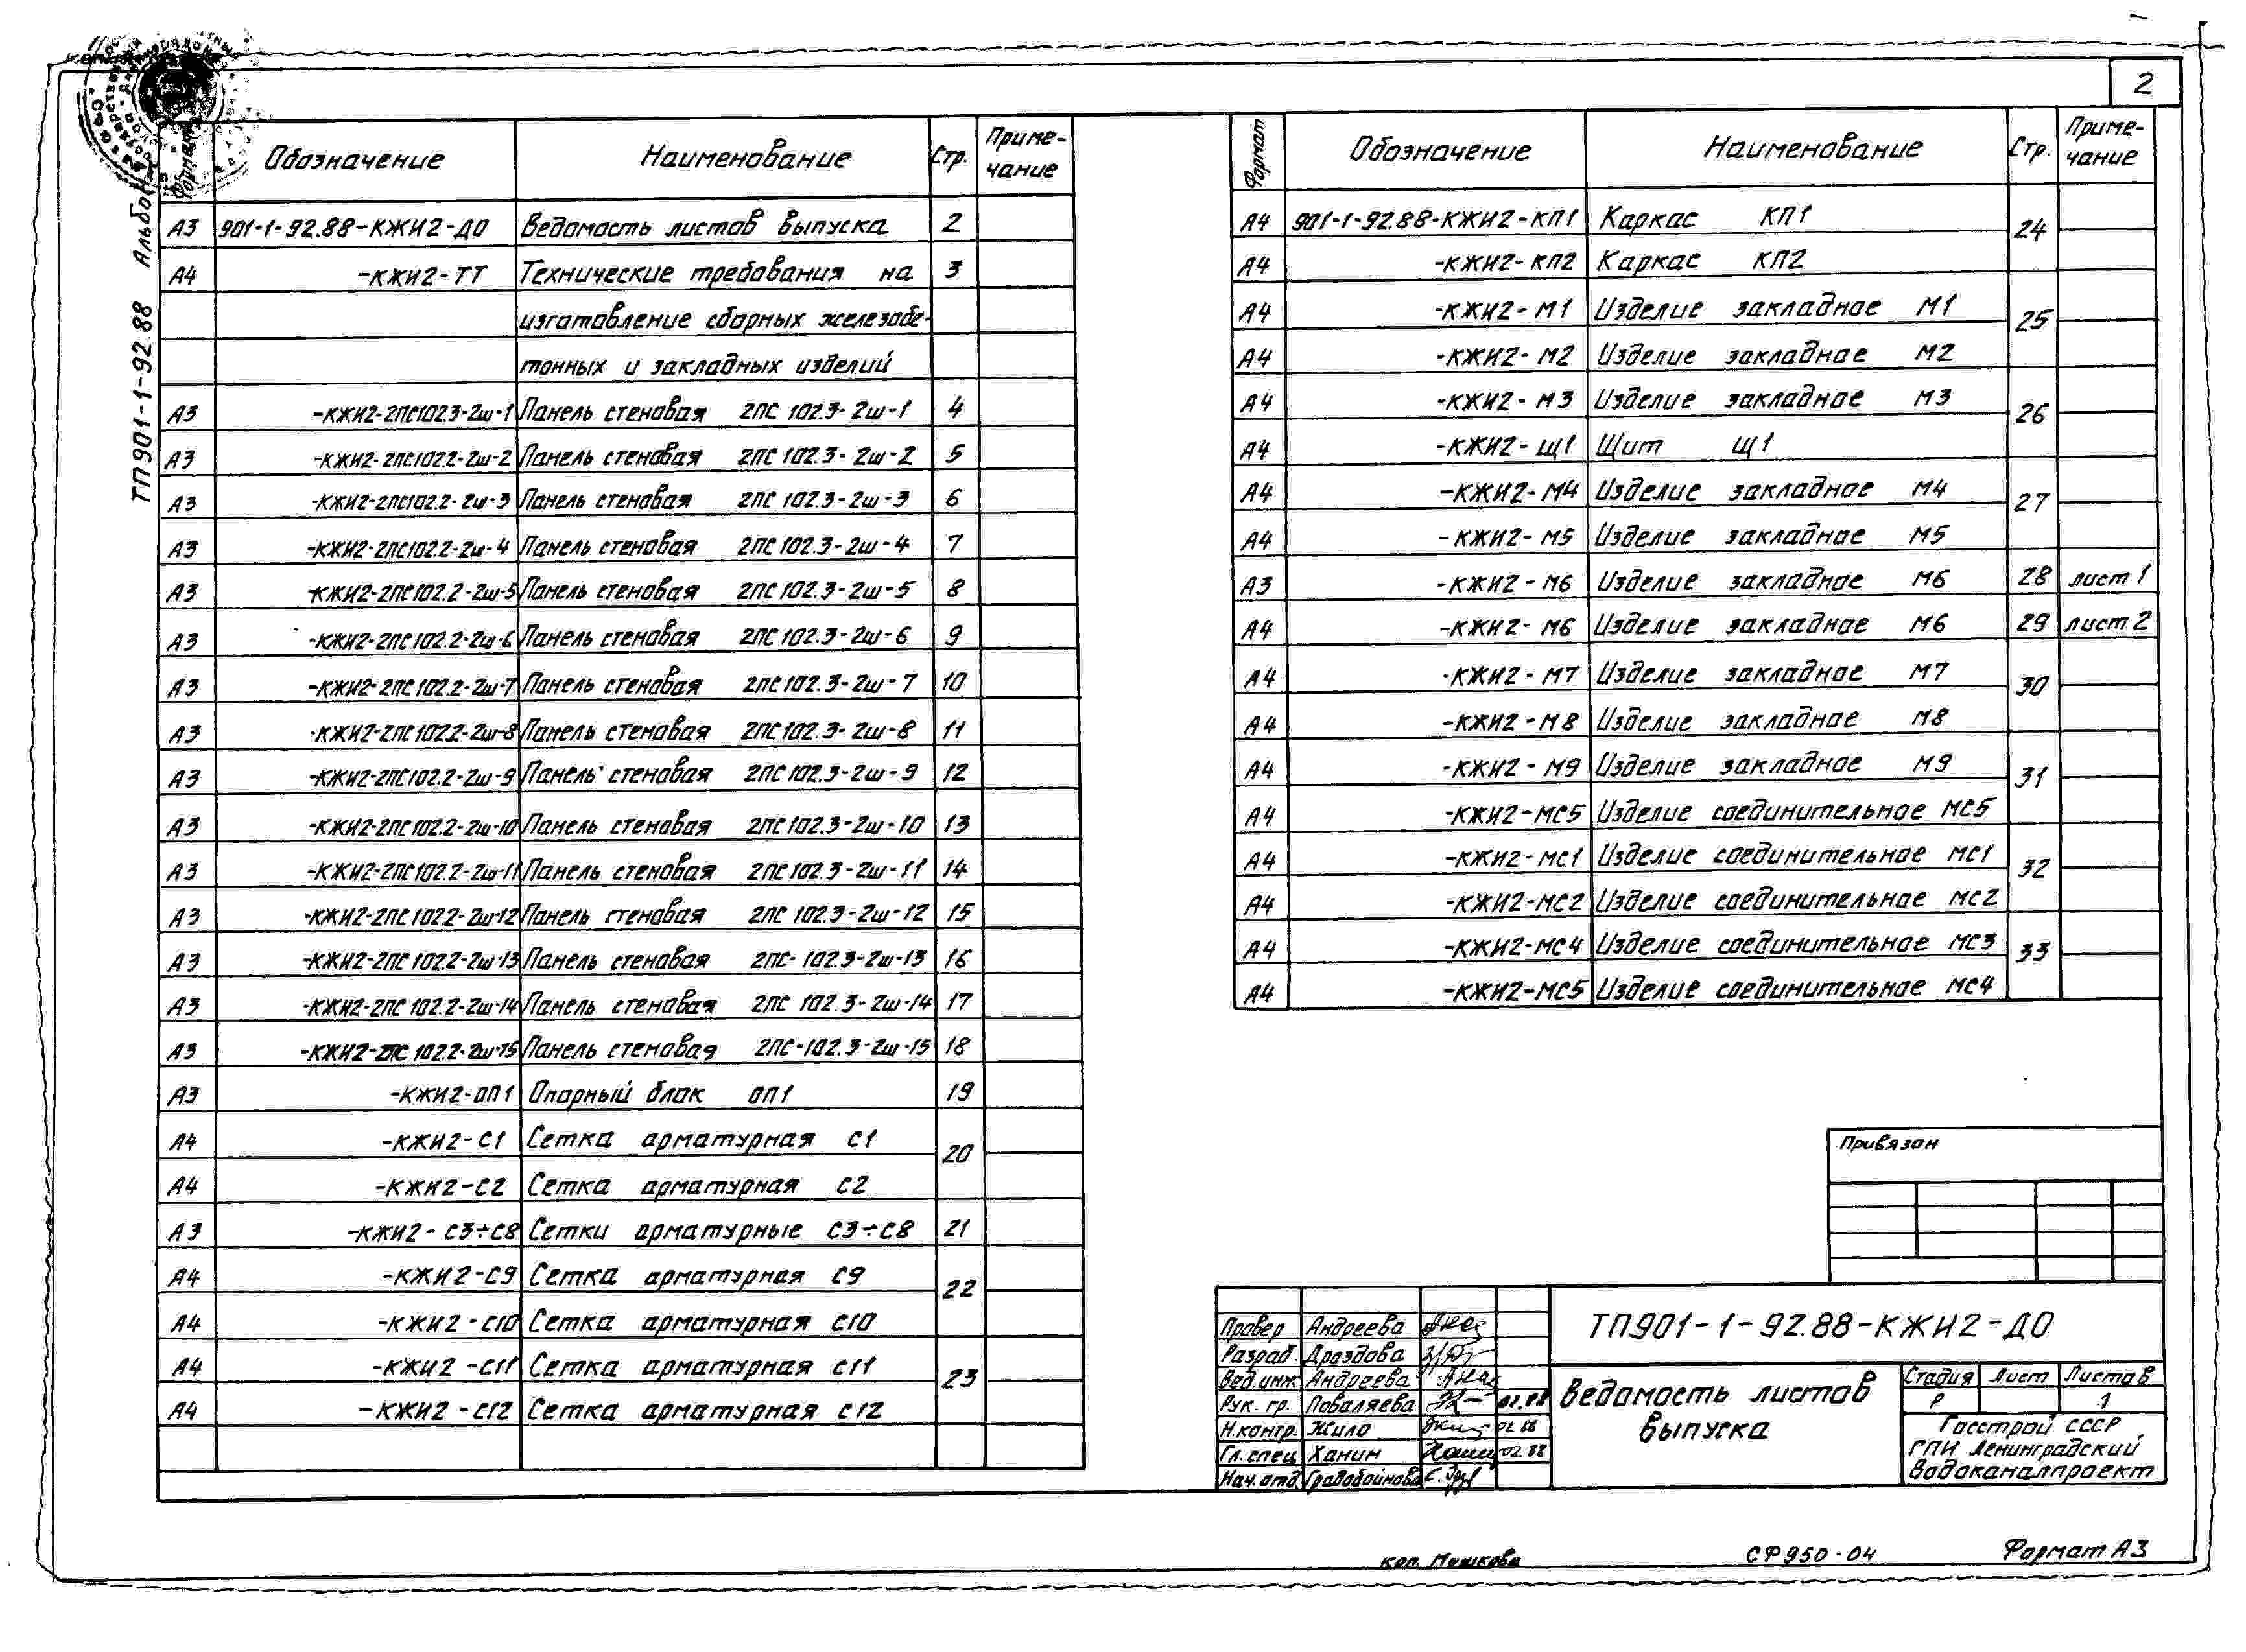 2
ТП901-1-92.88 Альбом
Формат Обозначение Наименование Стр. Приме-
чание
А3 901-1-92.88-КЖИ2-ДО Ведомость листов выпуска 2
А4 -КЖИ2-ТТ Технические требования на 3
изготовление сборных железобе-
тонных и закладных изделий
А3 -КЖИ2-2ПС102.3-2ш-1 Панель стеновая 2ПС 102.3-2ш-1 4
А3 -КЖИ2-2ПС102.2-2ш-2 Панель стеновая 2ПС 102.3-2ш-2 5
А3 -КЖИ2-2ПС102.2-2ш-3 Панель стеновая 2ПС 102.3-2ш-3 6
А3 -КЖИ2-2ПС102.2-2ш-4 Панель стеновая 2ПС 102.3-2ш-4 7
А3 -КЖИ2-2ПС102.2-2ш-5 Панель стеновая 2ПС 102.3-2ш-5 8
А3 -КЖИ2-2ПС102.2-2ш-6 Панель стеновая 2ПС 102.3-2ш-6 9
А3 -КЖИ2-2ПС102.2-2ш-7 Панель стеновая 2ПС102.3-2ш-7 10
А3 -КЖИ2-2ПС102.2-2ш-8 Панель стеновая 2ПС102.3-2ш-8 11
А3 -КЖИ2-2ПС102.2-2ш-9 Панель стеновая 2ПС102.3-2ш-9 12
А3 -КЖИ2-2ПС102.2-2ш-10 Панель стеновая 2ПС102.3-2ш-10 13
А3 -КЖИ2-2ПС102.2-2ш-11 Панель стеновая 2ПС102.3-2ш-11 14
А3 -КЖИ2-2ПС102.2-2ш-12 Панель стеновая 2ПС 102.3-2ш-12 15
А3 -КЖИ2-2ПС102.2-2ш-13 Панель стеновая 2ПС-102.3-2ш-13 16
А3 -КЖИ2-2ПС102.2-2ш-14 Панель стеновая 2ПС 102.3-2ш-14 17
А3 -КЖИ2-2ПС102.2-2ш-15 Панель стеновая 2ПС-102.3-2ш-15 18
А3 -КЖИ2-ОП1 Опорный блок ОП1 19
А4 -КЖИ2-С1 Сетка арматурная С1 20
А4 -КЖИ2-С2 Сетка арматурная С2
А3 -КЖИ2-С3÷С8 Сетки арматурные С3÷С8 21
А4 -КЖИ2-С9 Сетка арматурная С9 22
А4 -КЖИ2-С10 Сетка арматурная С10
А4 -КЖИ2-С11 Сетка арматурная С11 23
А4 -КЖИ2-С12 Сетка арматурная С12
Формат Обозначение Наименование Стр. Приме-
чание
А4 901-1-92.88-КЖИ2-КП1 Каркас КП1 24
А4 -КЖИ2-КП2 Каркас КП2
А4 -КЖИ2-М1 Изделие закладное М1 25
А4 -КЖИ2-М2 Изделие закладное М2
А4 -КЖИ2-М3 Изделие закладное М3 26
А4 -КЖИ2-Щ1 Щит Щ1
А4 -КЖИ2-М4 Изделие закладное М4 27
А4 -КЖИ2-М5 Изделие закладное М5
А3 -КЖИ2-М6 Изделие закладное М6 28 лист 1
А4 -КЖИ2-М6 Изделие закладное М6 29 лист 2
А4 -КЖИ2-М7 Изделие закладное М7 30
А4 -КЖИ2-М8 Изделие закладное М8
А4 -КЖИ2-М9 Изделие закладное М9 31
А4 -КЖИ2-МС5 Изделие соединительное МС5
А4 -КЖИ2-МС1 Изделие соединительное МС1 32
А4 -КЖИ2-МС2 Изделие соединительное МС2
А4 -КЖИ2-МС4 Изделие соединительное МС3 33
А4 -КЖИ2-МС5 Изделие соединительное МС4
Привязан
Провер Андреева
Разраб. Дроздова
Вед.инж. Андреева
Рук. гр. Поваляева 02.88
Н.контр. Жило 02.88
Гл.спец Ханин 02.88
Нач.отд. Градобойнова
ТП901-1-92.88-КЖИ2-ДО
Ведомость листов
выпуска
Стадия Лист Листов
Р 1
Госстрой СССР
ГПИ Ленинградский
Водоканалпроект
коп. Машкова СФ950-04 Формат А3